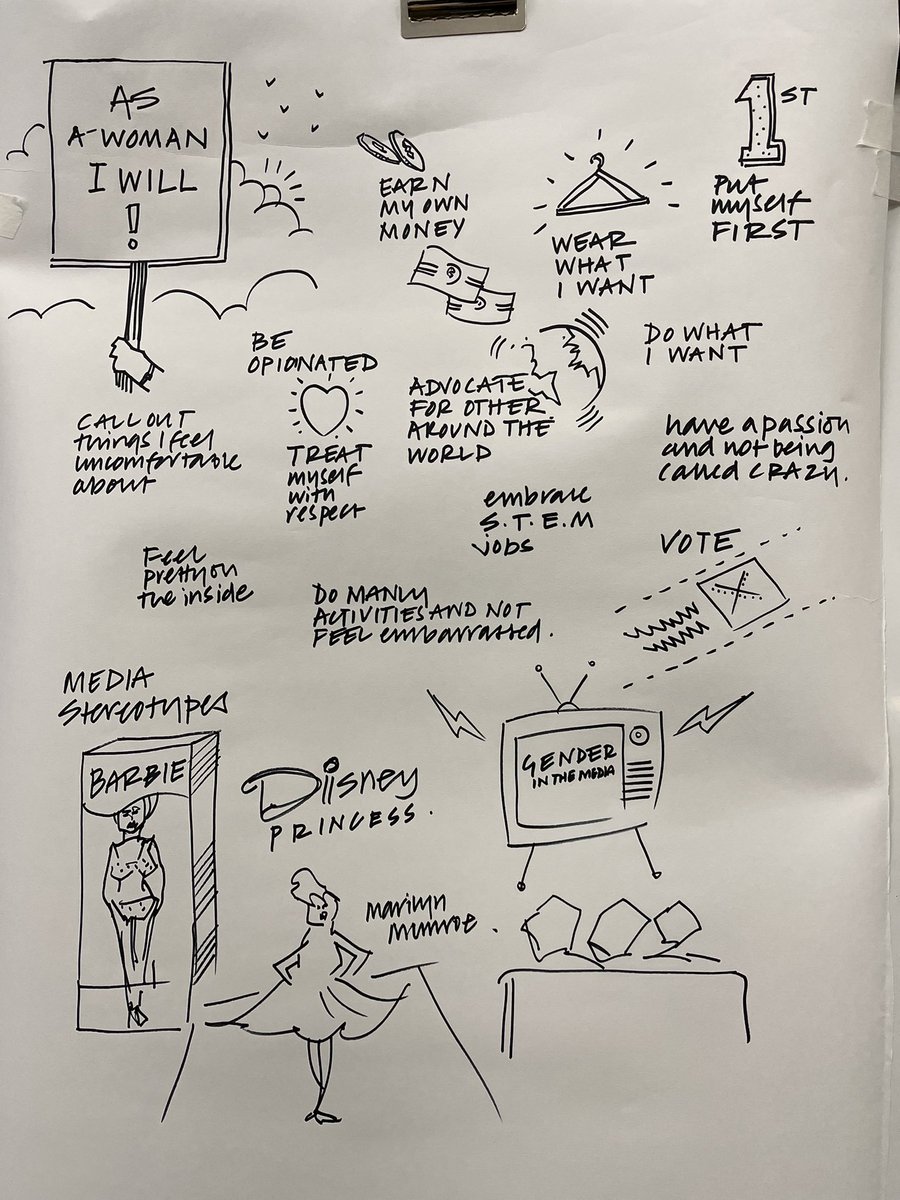 AS
A-WOMAN
I WILL
!
EARN
MY OWN
MONEY
WEAR
WHAT
I WANT
1ST
PUT
myself
FIRST
BE
OPIONATED
DO WHAT
I WANT
CALL OUT
things I feel
uncomfortable
about
TREAT
myself
with
respect
ADVOCATE
FOR OTHER
AROUND THE
WORLD
have a passion
and not being
called CRAZY.
embrace
S.T.E.M
jobs
VOTE
Feel
pretty on
the inside
DO MANLY
ACTIVITIES AND NOT
FEEL embarrassed.
MEDIA
Stereotypes
BARBIE
Diisney
PRINCESS.
GENDER
IN THE MEDIA
Marilyn
Munroe.